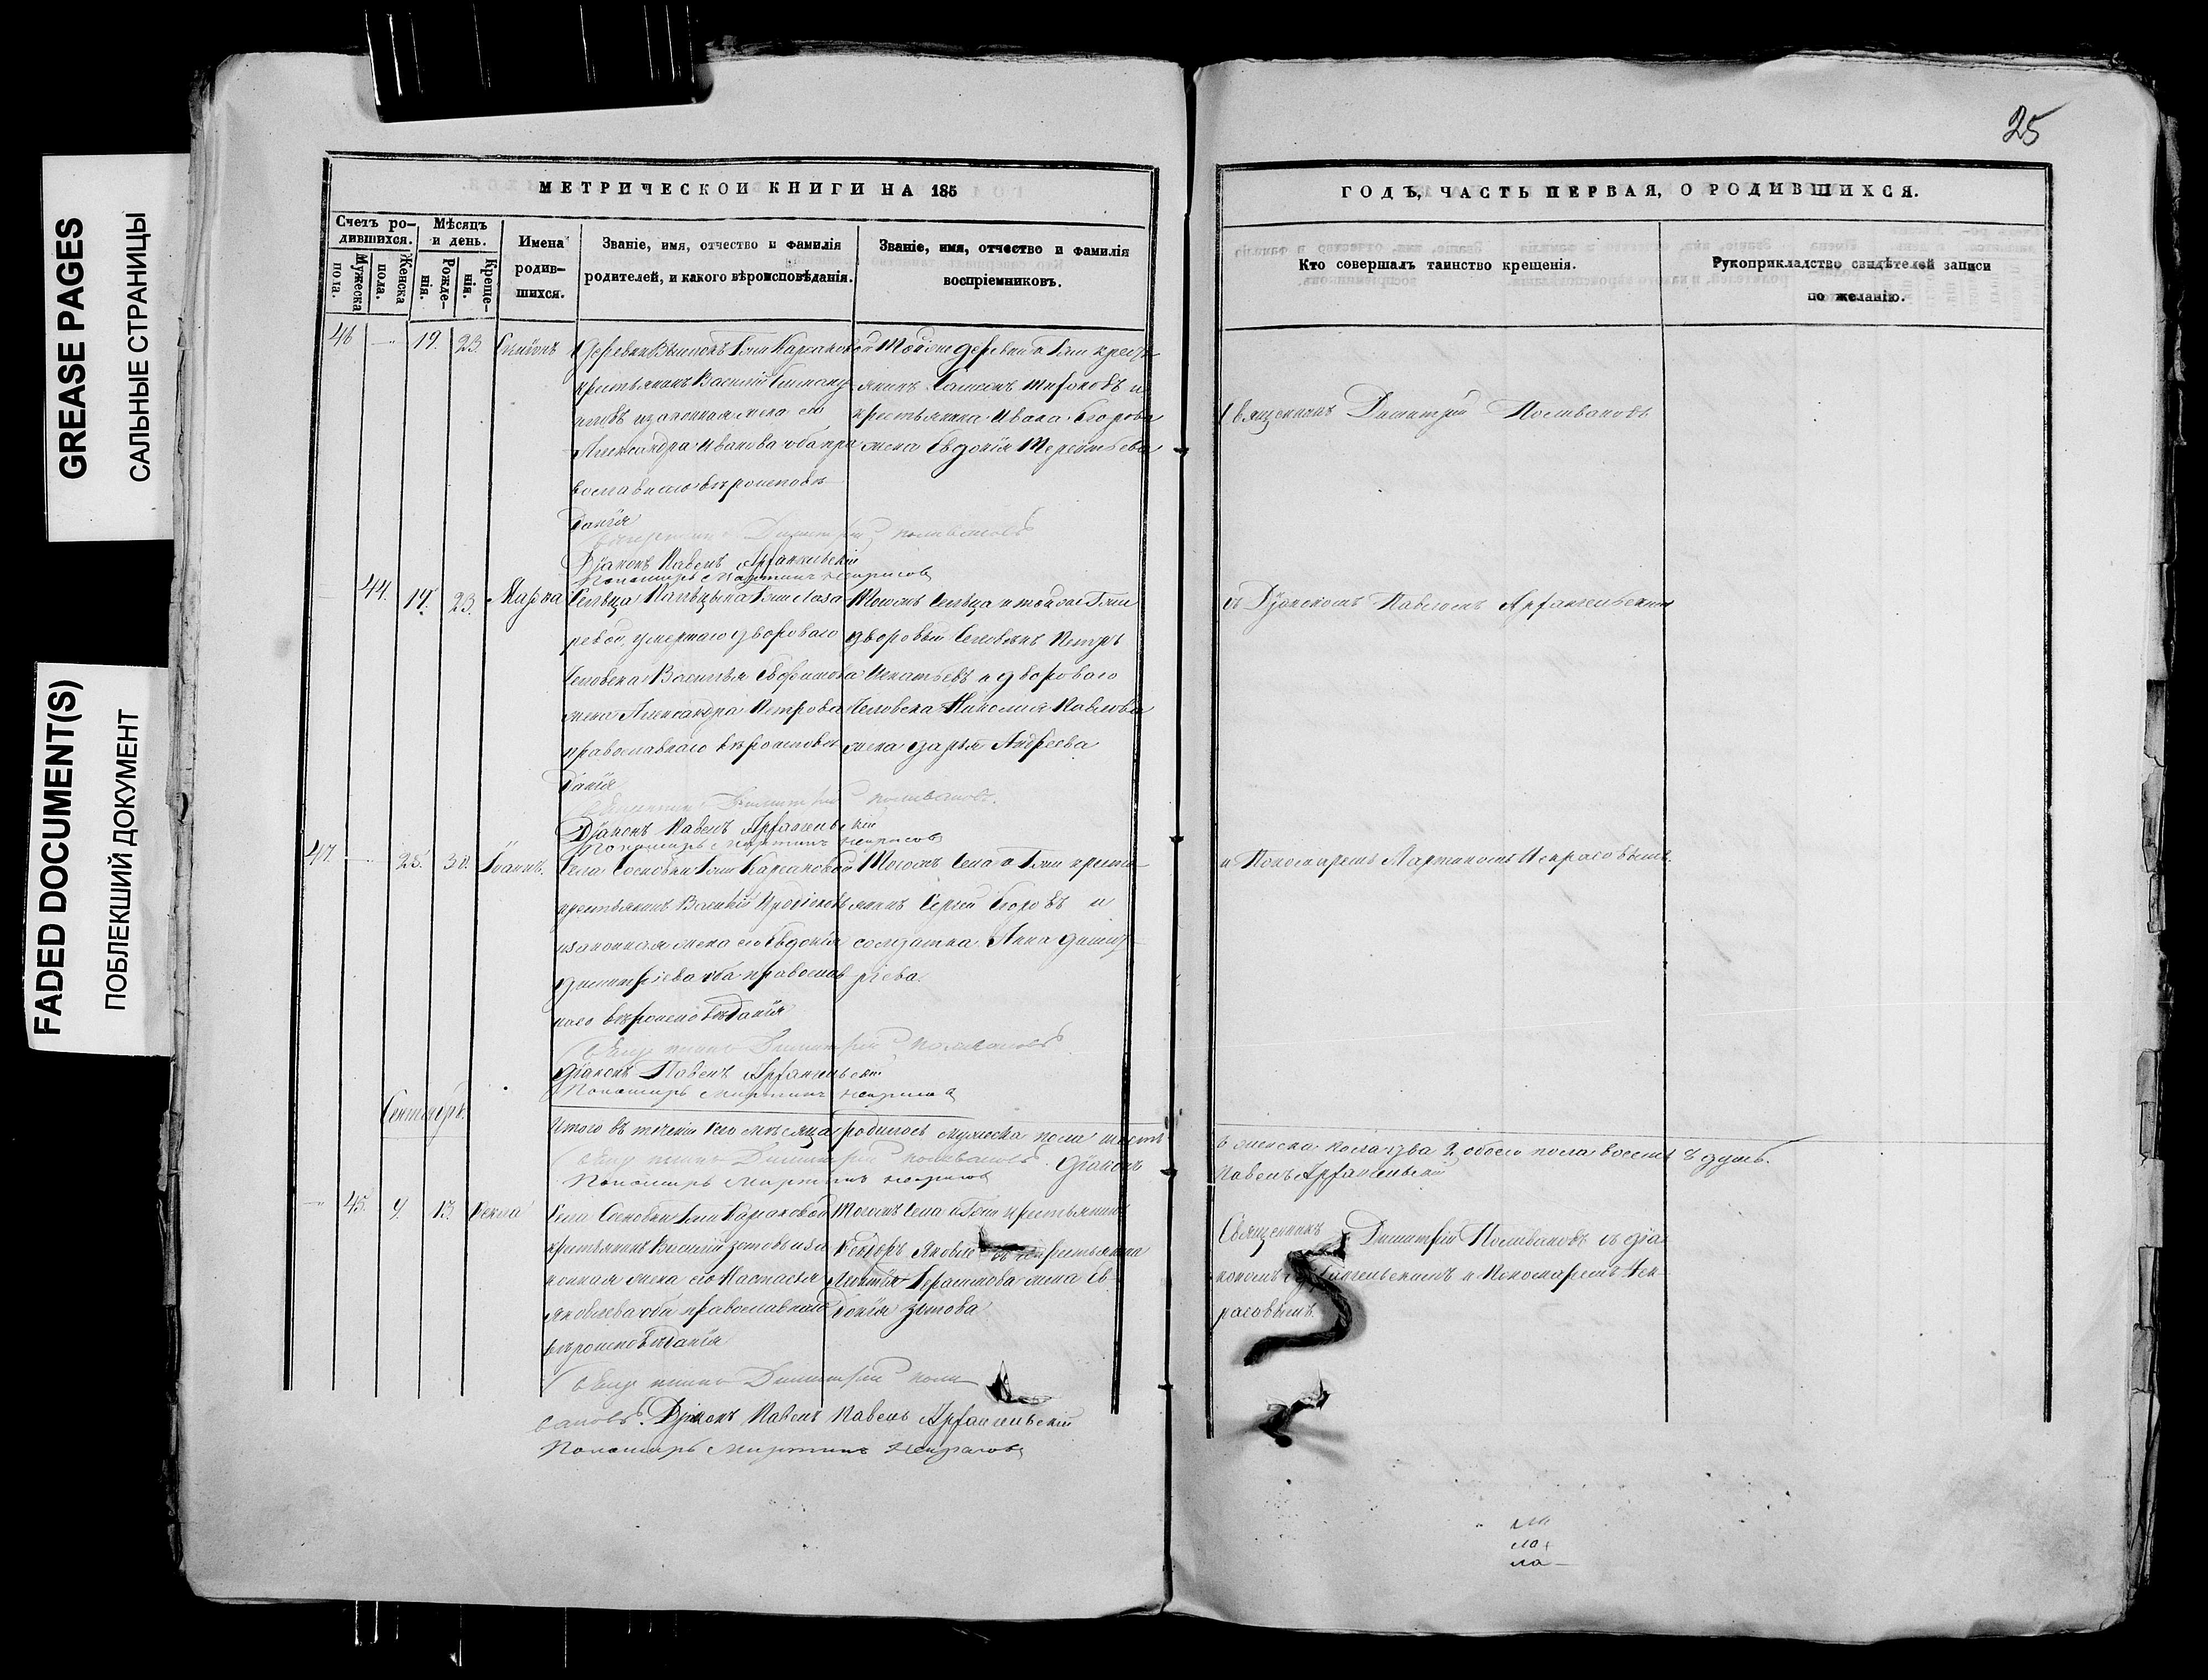 GREASE PAGES
САЛЬНЫЕ СТРАНИЦЫ
FADED DOCUMENT(S)
ПОБЛЕКШИЙ ДОКУМЕНТ
25
МЕТРИЧЕСКОЙ КНИГИ НА 185
Счетъ ро-
дившихся.
Мужеска пола.
Женска пола.
Мѣсяцъ
и день.
Рожде-
нія.
Креще-
нія.
Имена
родив-
шихся.
Званіе, имя, отчество и фамилія
родителей, и какого вѣроисповѣданія.
Званіе, имя, отчество и фамилія
воспріемниковъ.
46 19. 23.
крестьянинъ Василій
и законная жена его
Александра Иванова оба пра
вославнаго вѣроисповѣ
данія
Той же деревни и Гжи кресть
янинъ и
крестьянина Ивана Егорова
жена Евдокія Терентьева
Священникъ Димитрій Поливановъ
Діаконъ Павелъ Архангельскій
Пономарь Мартинъ Некрасовъ
44. 19. 23. Марѳа
Сельца Гжи Лаза
ревой, умершаго двороваго
человека Василья
жена Александра Петрова
православнаго вѣроисповѣ
данія
Тогожъ сельца и тойже Гжи
дворовый человѣкъ Петръ
Игнатьевъ и двороваго
человека Николая Павлова
жена Дарья Андреева
Священникъ Димитрій Поливановъ.
Діаконъ Павелъ Архангельскій
Пономарь Мартинъ Некрасовъ
47. 25. 30. Іоаннъ.
Села Сосновки Гжи Карсаковой
крестьянинъ Василій
и законная жена его Евдокія
Димитріева оба православ
наго вѣроисповѣданія
Тогожъ села и Гжи кресть
янинъ Сергій и
солдатка Анна Димит
ріева.
Священникъ Димитрій Поливановъ
Діаконъ Павелъ Архангельскій
Пономарь Мартинъ Некрасовъ
Сентябрь.
Итого въ теченіи сего мѣсяца родилось мужеска пола шесть
Священникъ Димитрій Поливановъ. Діаконъ
Пономарь Мартинъ Некрасовъ
45. 9. 13. Ѳекла
Села Сосновки Гжи Карсаковой
крестьянинъ Василій Зотовъ и за
конная жена его Настасья
Яковлева оба православнаго
вѣроисповѣданія
Тогожъ села и Гжи крестьянинъ
Ѳедоръ Яковлевъ и крестьянина
Герасимова жена Ев
докія Зотова
Священникъ Димитрій Поли
вановъ. Діаконъ Павелъ Павелъ Архангельскій
Пономарь Мартинъ Некрасовъ
ГОДЪ, ЧАСТЬ ПЕРВАЯ, О РОДИВШИХСЯ.
Кто совершалъ таинство крещенія.
Рукоприкладство свидѣтелей записи
по желанію.
Священникъ Димитрій Поливановъ
съ Діакономъ Павломъ Архангельскимъ
и Пономаремъ Мартиномъ Некрасовымъ.
6 женска пола два 2, обоего пола восемь 8 душъ.
Павелъ Архангельскій
Священникъ Димитрій Поливановъ съ діа
кономъ Архангельскимъ и Пономаремъ Нек
расовымъ.